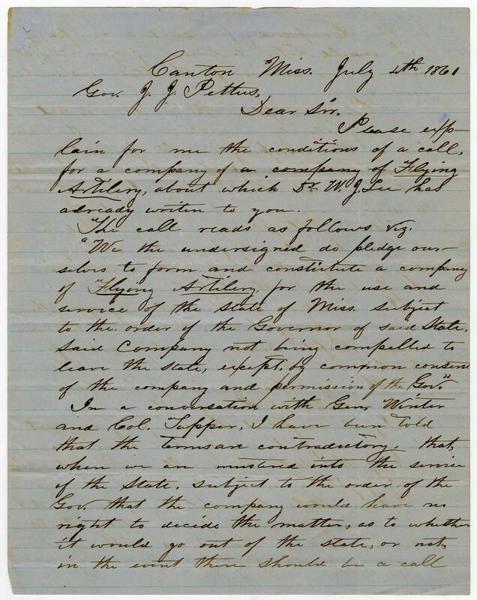 Canton Miss. July 4th 1861
Gov. J. J. Pettus,
Dear Sir.
Please exp-
lain for me the conditions of a call,
for a company of a company of Flying
Artilery, about which Dr. W J Lee has
adready writen to you.
The call reads as follows viz.
"We the undersigned do pledge our-
selvs to form and constitute a company
of Flying Artilery, for the use and
service of the state of Miss. subject
to the order of the Governor of said State,
said Company not being compelled to
leave the state, except, by common consent
of the company and permission of the Gov."
In a conversation with Gen. Winter
and Col. Tupper, I have been told
that the terms are contradictory, that
when we are mustered into the service
of the State, subject to the order of the
Gov. that the company would have no
right to decide the matter, as to whether
it would go out of the state, or not,
in the event there should be a call